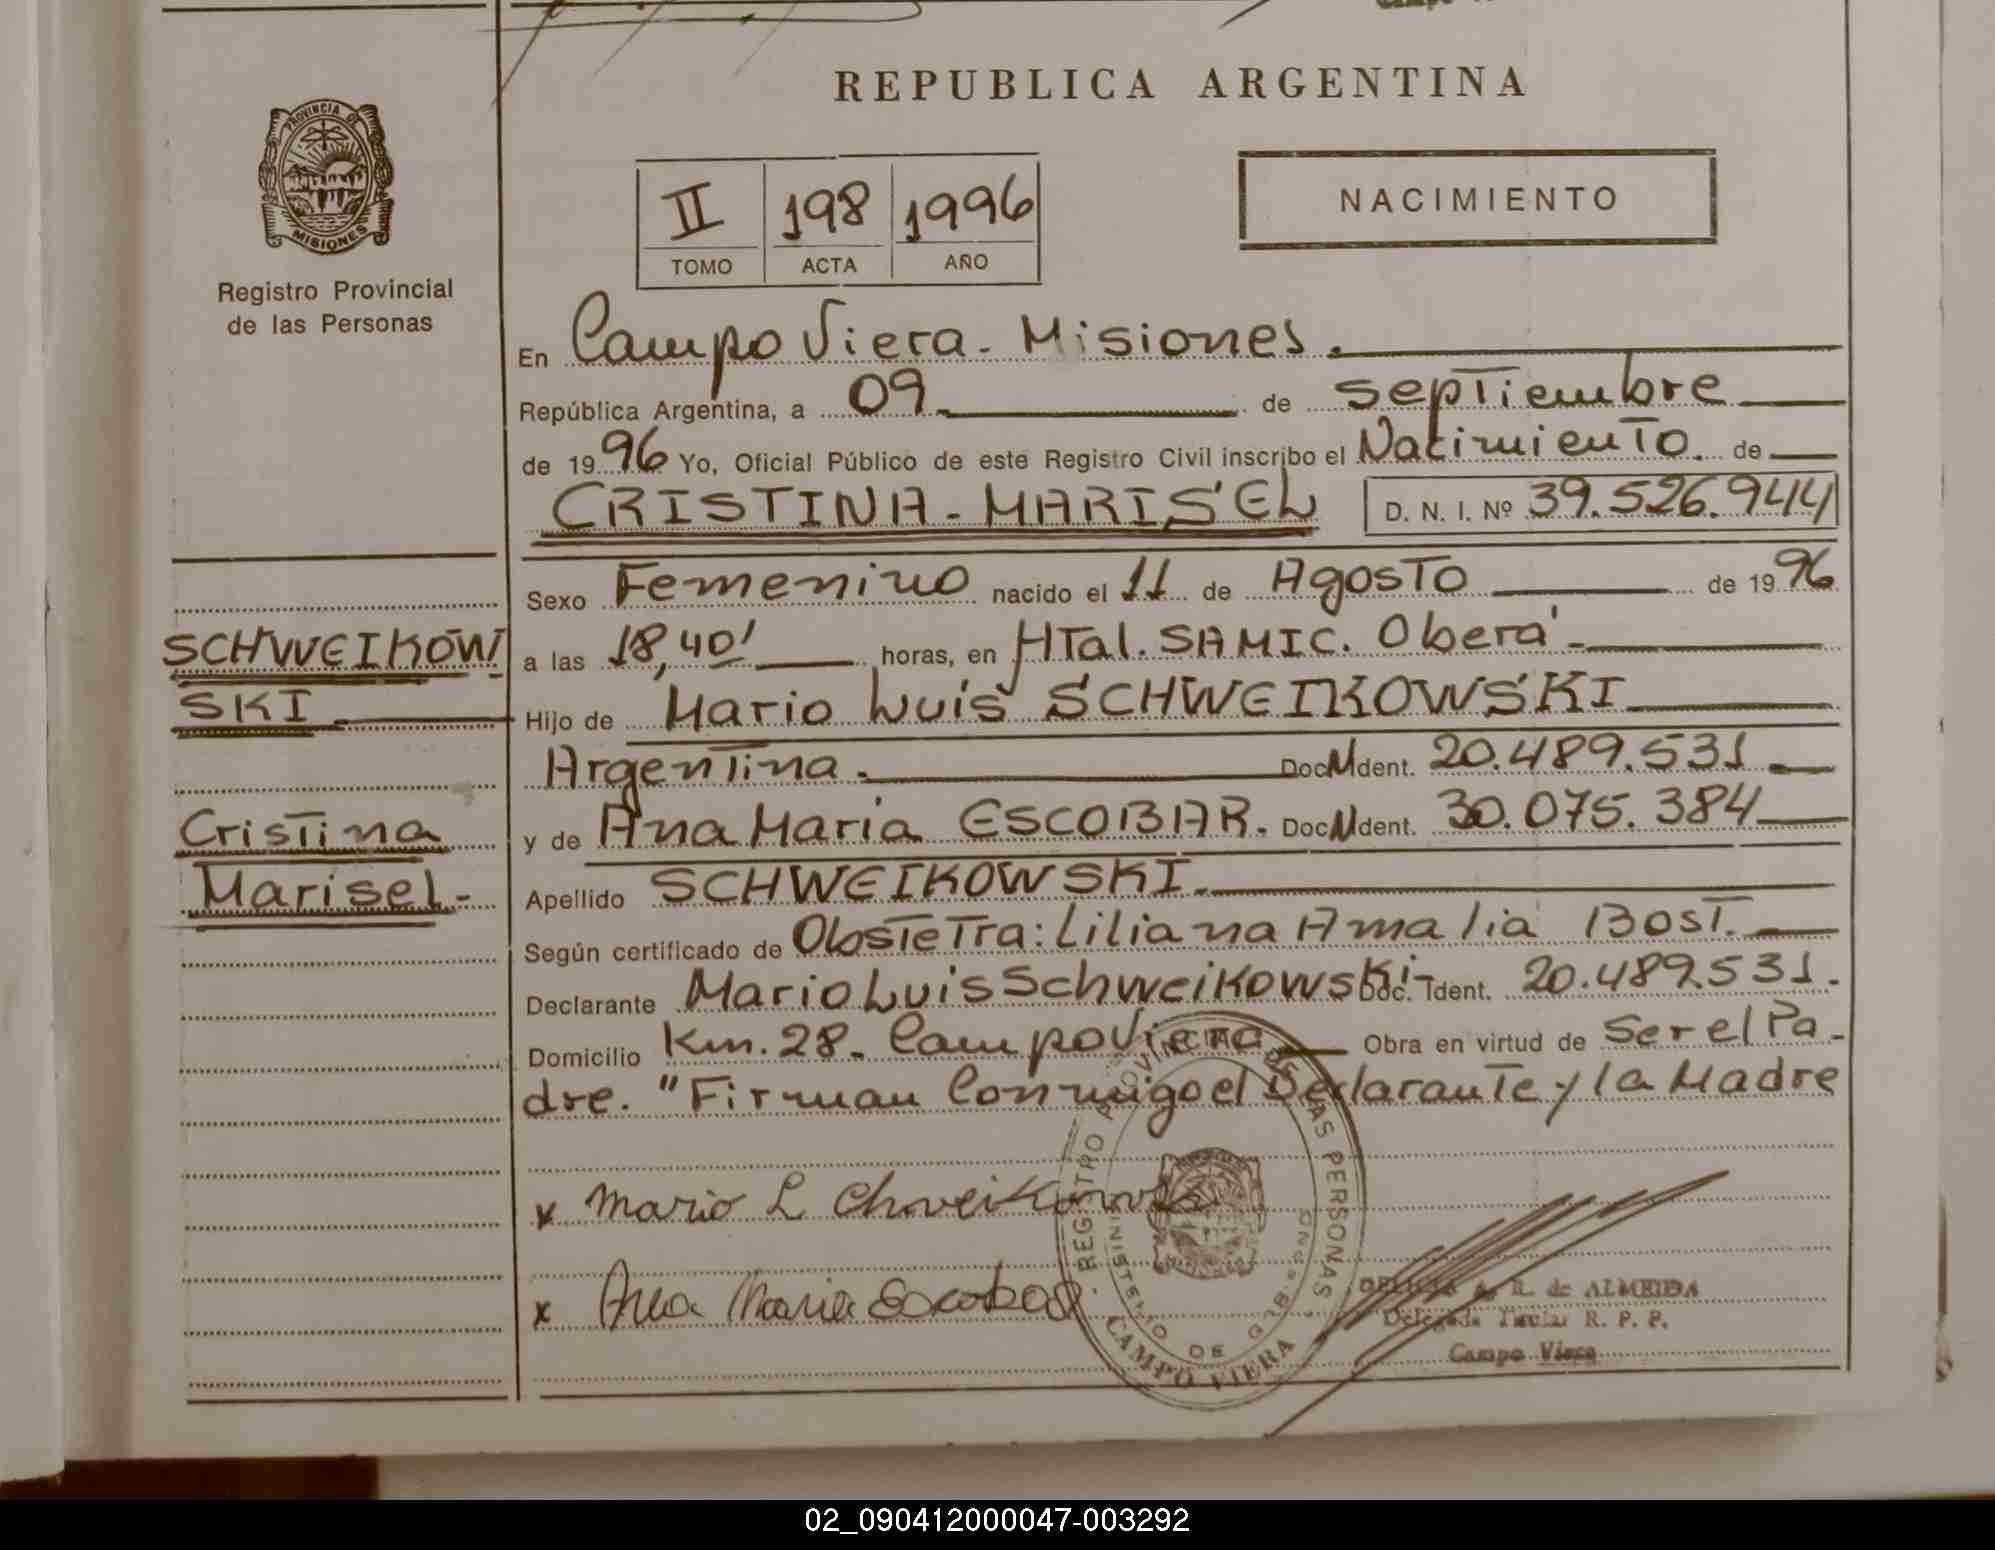 REPUBLICA ARGENTINA
PROVINCIA DE
MISIONES
Registro Provincial
de las Personas
NACIMIENTO
II 198 1996
TOMO ACTA AÑO
En Campo Viera - Misiones.
República Argentina, a 09 de septiembre
de 1996 Yo, Oficial Público de este Registro Civil inscribo el Nacimiento de
CRISTINA - MARISEL D. N. I. Nº 39.526.944
Sexo Femenino nacido el 11 de Agosto de 1996
SCHWEIKOW
SKI
a las 18,40' horas, en HTal. SAMIC. Oberá -
Hijo de Mario Luis SCHWEIKOWSKI
Argentina. Doc. dent. 20.489.531
Cristina
Marisel -
y de Ana Maria ESCOBAR. Doc. dent. 30.075.384
Apellido SCHWEIKOWSKI.
Según certificado de Obstetra: Liliana Amalia BOST.
Declarante Mario Luis Schweikowski - Doc. Ident. 20.489.531.
Domicilio Km. 28 - Campo Viera Obra en virtud de Ser el Pa-
dre. "Firman Conmigo el Declarante y la Madre
x Mario L Chveikowski
x Ana Maria Escobar
REGISTRO PROVINCIAL DE LAS PERSONAS
MINISTERIO DE GOBIERNO
CAMPO VIERA
DELICIA A. R. de ALMEIDA
Delegada Titular R. P. P.
Campo Viera
02_090412000047-003292